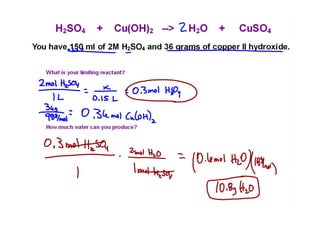 H2SO4 + Cu(OH)2 --> 2 H2O + CuSO4
You have 150 ml of 2M H2SO4 and 36 grams of copper II hydroxide.
What is your limiting reactant?
2mol H2SO4 / 1 L = x / 0.15 L = 0.3mol H2SO4
36g / 98g/mol = 0.36 mol Cu(OH)2
How much water can you produce?
0.3mol H2SO4 / 1 · 2mol H2O / 1mol H2SO4 = (0.6mol H2O)(18g/mol)
10.8g H2O